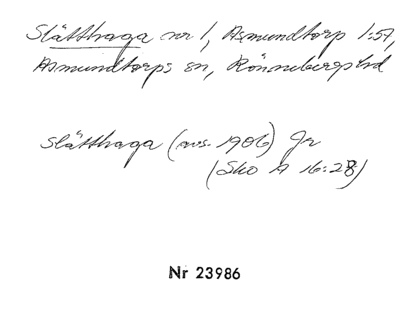 Slätthaga nr 1, Asmundtorp 1:57,
Asmundtorps sn, Rönnebergs hd
Slätthaga (avs. 1906) Jr
(Sko A 16:28)
Nr 23986